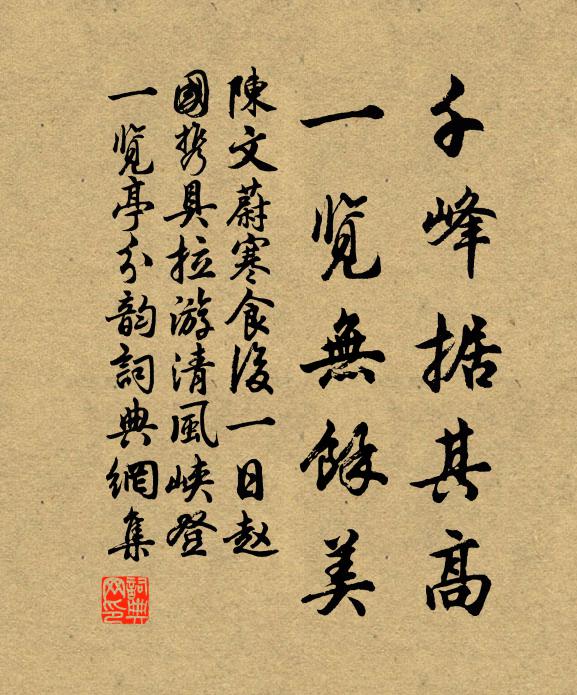 千峰据其高
一览無餘美
陳文蔚寒食後一日赵
國携具拉游清風峡登
一览亭分韵詞典網集
詞典网印